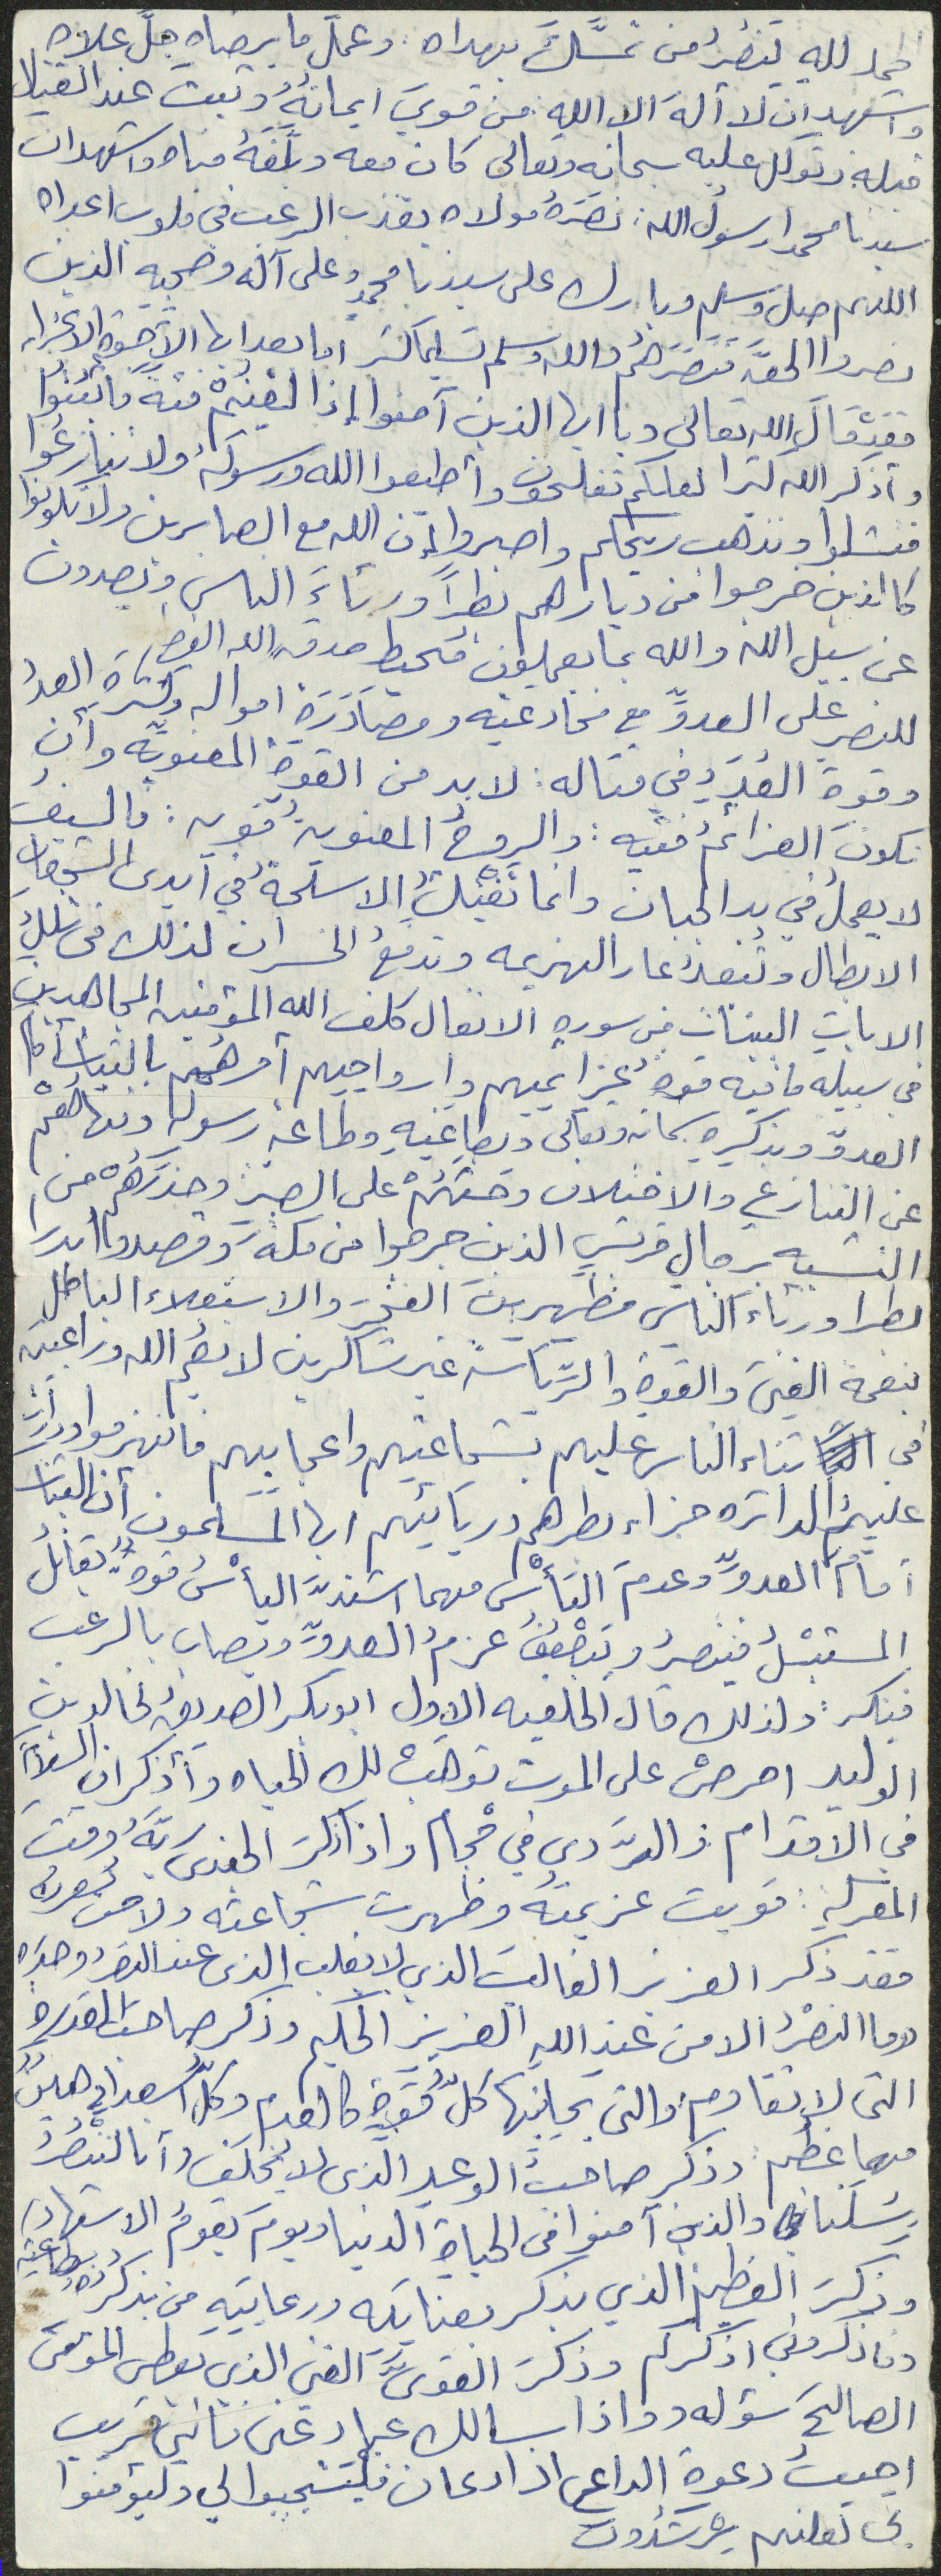 الحمد لله ينصُرُ من تمسَّكَ بهداه: وعمل ما يرضاه جلَّ علاه
واشهد ان لا اله الا الله: من قوي ايمانهُ وثبت عند القتال
قلبه: وتوكل عليه سبحانه وتعالى كان معه وبلَّغهُ مناه واشهد ان
سيدنا محمدا رسولُ الله: نصَرهُ مولاه بقذف الرعب في قلوب اعداه
اللهم صل وسلم وبارك على سيدنا محمدٍ وعلى آله وصحبه الذين
نصروا الحقَّ فنصَرَهُم الله وسلم تسليما كثيرا اما بعد ايها الاخوة الاعزاء
فقد قالَ الله تعالى «يا ايها الذين آمنوا إذا لقيتُمْ فئةً فاثبُتُوا
واذكروا الله كثيرا لعلكم تفلحون وأطيعوا الله ورسولهُ ولا تنازعُوا
فتفشلوا وتذهب ريحكم واصبروا إن الله مع الصابرين ولا تكونوا
كالذين خرجوا من ديارهم بطراً ورئاءَ الناس ويصدون
عن سبيل الله والله بما يعملون محيط صدق الله العظيم
للنصر على العدوِّ مع مخادعته ومصادَرَة امواله وكثرة العددِ
وقوة العُدَدِ في قتاله: لا بد من القوة المعنويَّة وأن
تكونَ العزائمُ فتيه: والروحُ المعنويةُ قويه: فالسيفُ
لا يعملُ في يد الجبان وانما تفتِكُ الاسلحةُ في ايدى الشجعان
الابطال وتُبعدُ عار الهزيمه وتدفعُ الخسران لذلك في تلك
الايات البينات من سورة الانفال كلف الله المؤمنين المجاهدين
في سبيله ما فيه قوةُ عزايمهم وارواحهم أمرهُم بالثبات أمام
العدوّ وبذكره سبحانه وتعالى وبطاعته وطاعة رسوله ونهاهُمْ
عن التنازع والاختلاف وحثهُمْ على الصبر وحذرَهُمْ من
التشبه برجال قريش الذين خرجوا من مكةَ وقصدوا بدرا
بطرا ورئاء الناس مظهرين الفخرَ والاستعلاء الباطل
بنعمة الغِنى والقوة والرئاسة غير شاكرين لانعُم الله وراغبين
في ثناء الناس عليهم بشجاعتهم واعجابهم فانهزموا ودارت
عليهُم الدائره جزاء بطرهم وريائهم ايها المسلمون ان الثبات
أمامَ العدوِّ وعدمَ اليأسْ مهما اشتدَّ البأسُ قوةٌ يقاتلُ
المستبسلُ فينصرُ ويَضْعُفُ عزمُ العدوِّ ويصاب بالرعب
فينكسر: ولذلك قال الخليفه الاول ابوبكر الصديقُ لخالد بن
الوليد احرصْ على الموت توهَبْ لك الحياه واذكر ان السلامة
في الاقدام والتردي في الاحجام واذا ذكرَ الجندي ربَّهُ وقتَ
المعركة: قويت عزيمتهُ وظهرت شجاعته ولاحت نُصرتهُ
فقد ذكر العزيز الغالبَ الذي لا يغلب الذى عند النصرُ وحدَه
«وما النصْرُ الا من عند الله العزيز الحكيم وذكر صاحبَ القدرة
التى لا تقاوم: والتى بجانبها كلُّ قوةٍ كالعدم وكلُّ استعدادٍ هيّنٌ
مهما عظُم: وذكر صاحبَ الوعد الذى لا يُخلَفُ «انا لننصُرُ
رسُلَنا والذين آمنوا فى الحياة الدنيا ويومَ يقومُ الاشهاد»
وذكرَ العظيمَ الذي يذكر بعنايته ورعايته من يذكرُهُ بطاعته
«فاذكرونى اذكركم وذكرَ القويَّ الغنى الذى يعطى المؤمنَ
الصالحَ سؤله «واذا سالك عبادى عنى فانى قريب
اجيبُ دعوة الداعى اذا دعان فليستجيبوا لي وليؤمنوا
بى لعلهم يرشدون